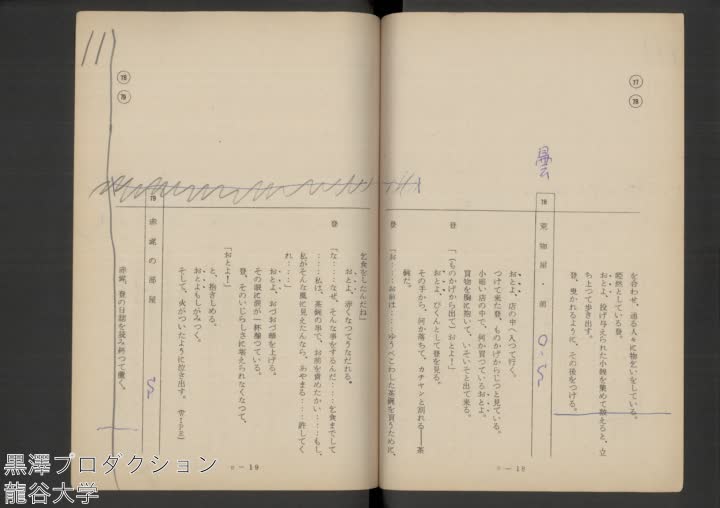 77
78
曇
78 荒物屋・前
を合わせ、通る人々に物乞いをしている。
唖然としている登。
おとよ、投げ与えられた小銭を集めて数えると、立
ち上って歩き出す。
登、曳かれるように、その後をつける。
おとよ、店の中へ入って行く。
つけて来た登、ものかげからじっと見ている。
小暗い店の中で、何か買っているおとよ。
買物を胸に抱いて、いそいそと出て来る。
登「(ものかげから出て)おとよ!」
おとよ、びくんとして登を見る。
その手から、何か落ちて、カチャンと割れる——茶
碗だ。
登「お……お前は……ゆうべこわした茶碗を買うために、
c—18
78
79
乞食をしたんだね」
おとよ、赤くなってうなだれる。
登「な……なぜ、そんな事をするんだ……乞食までして
……私は、茶碗の事で、お前を責めたかい……もし、
私がそんな風に見えたんなら、あやまる……許してく
れ……」
おとよ、おづおづ顔を上げる。
その眼に涙が一杯溜っている。
登、そのいじらしさに堪えられなくなって、
「おとよ!」
と、抱きしめる。
おとよもしがみつく。
そして、火がついたように泣き出す。
79 赤ひげの部屋
赤ひげ、登の日誌を読み終って呟く。
c—19
黒澤プロダクション
龍谷大学